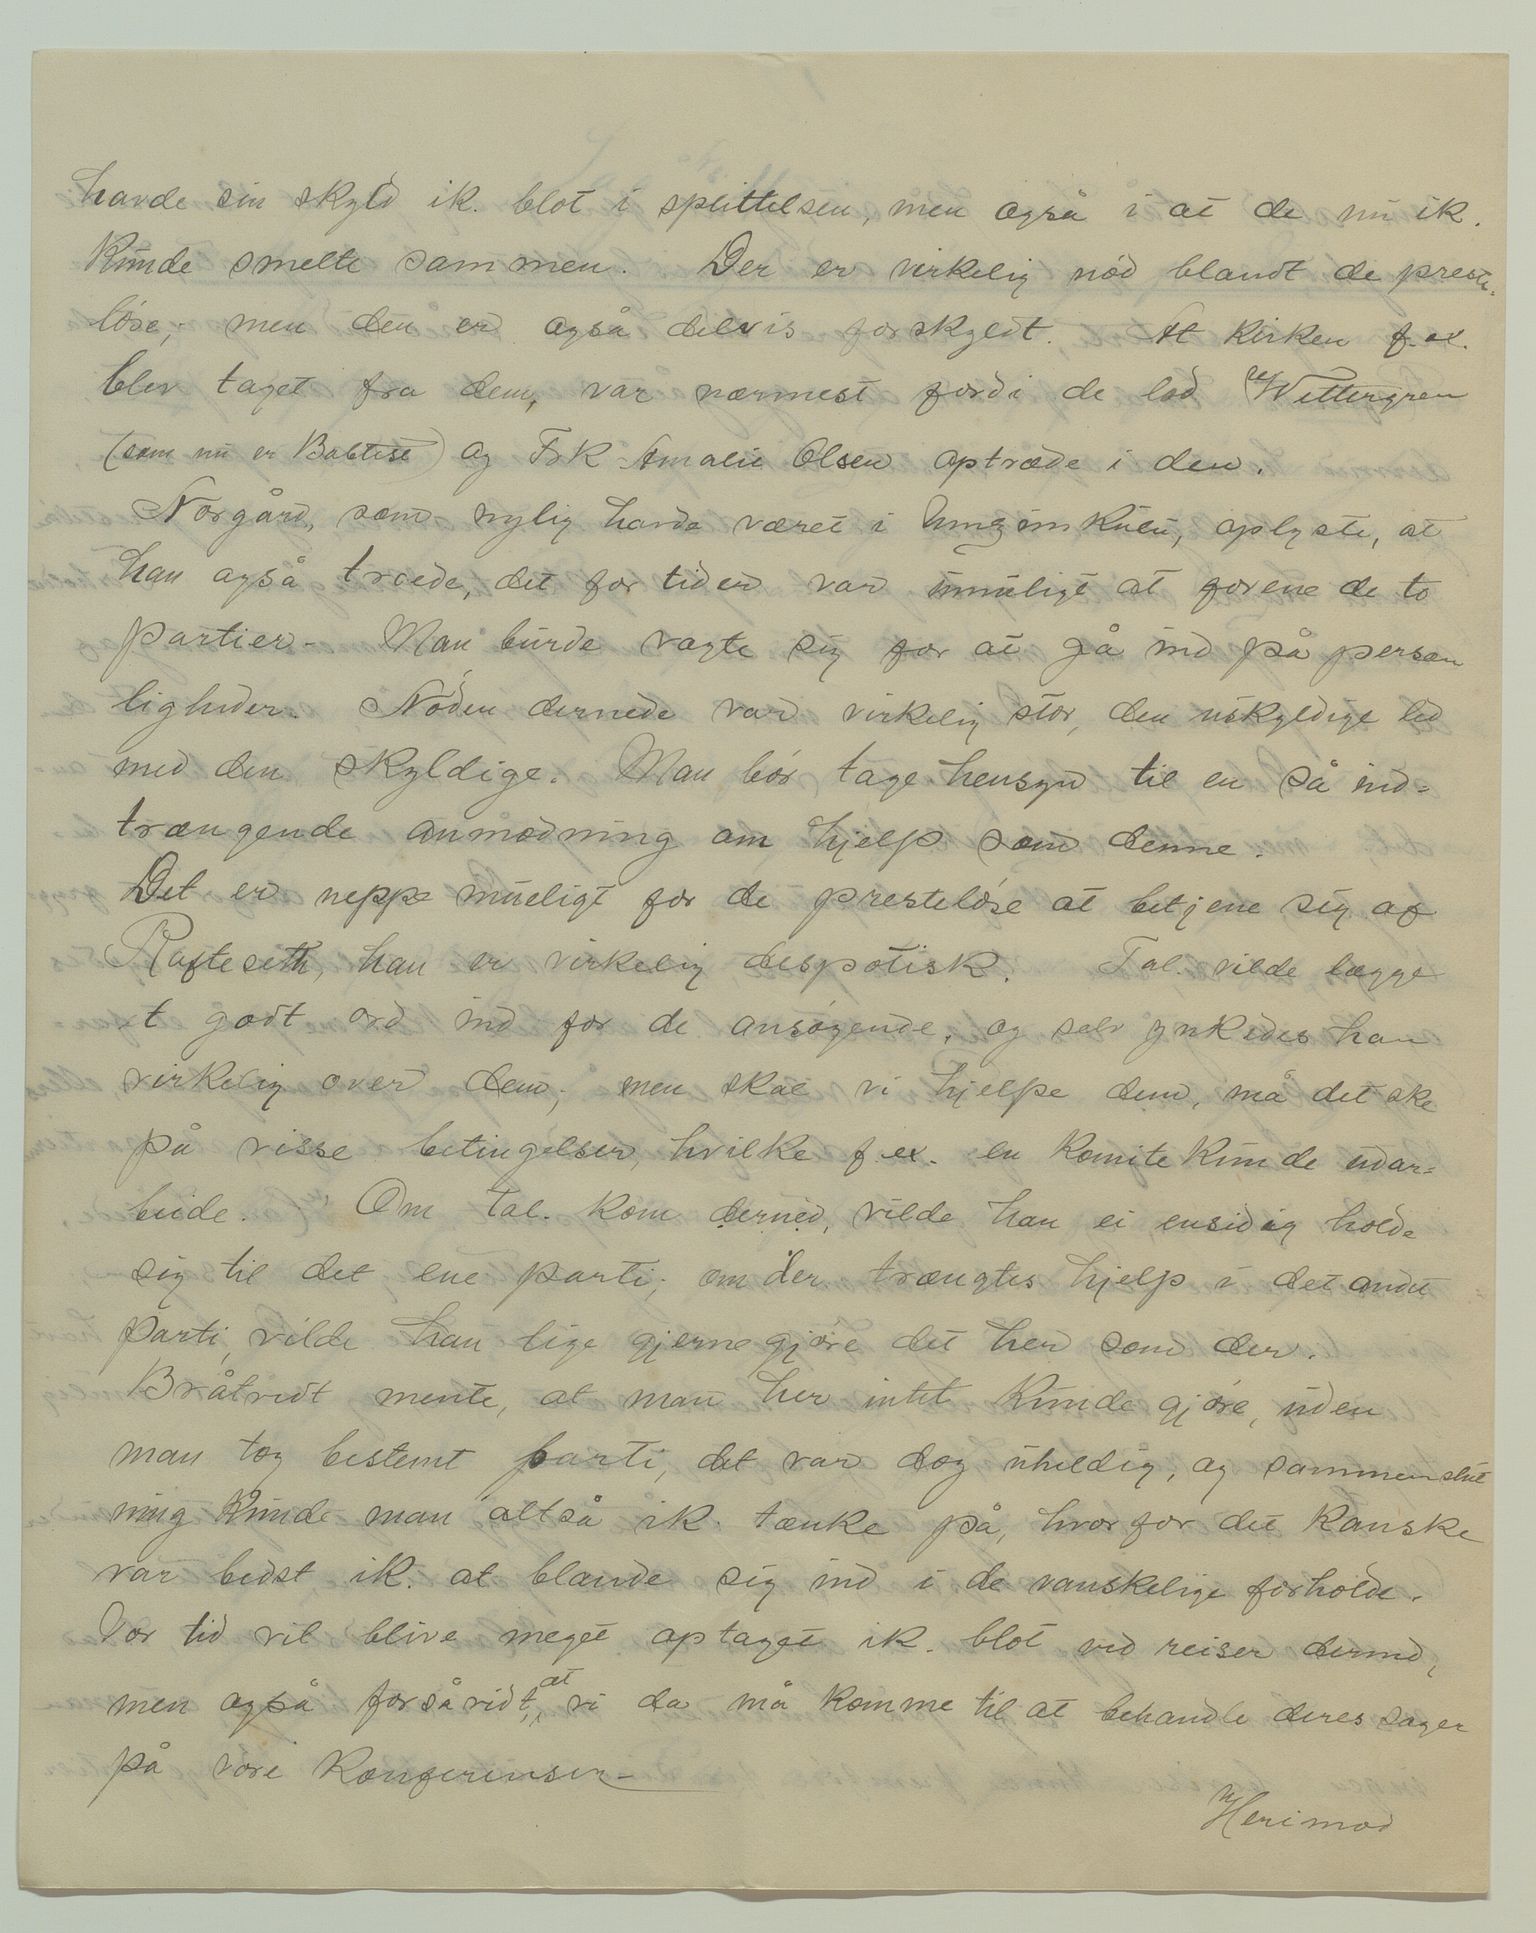 havde sin skyld ik. blot i splittelsen, men også i at de nu ik.
kunde smelte sammen. Der er virkelig nöd blandt de preste-
löse, men den er også delvis forskyldt. At kirken f. ex.
blev taget fra dem, var nærmest fordi de lod Wettergren
(som nu er Babtist) og Frk Amalie Olsen optræde i den.
Norgård, som nylig havde været i Umzimkulu, oplyste, at
han også troede, det for tiden var umuligt at forene de to
partier- Man burde vogte sig for at gå ind på person
ligheder. Nöden dernede var virkelig stor, den uskyldige led
med den skyldige. Man bör tage hensyn til en så ind-
trængende anmodning om hjelp som denne.
Det er neppe mueligt for de presteløse at betjene sig af
Rafteseth, han er virkelig despotisk. Tal. vilde lægge
et godt ord ind for de ansögende, og selv ynkedes han
virkelig over dem; men skal vi hjelpe dem, må det ske
på visse betingelser, hvilke f. ex. en komite kunde udar-
beide. Om Tal. kom derned, vilde han ei ensidig holde
sig til det ene parti; om der trængtes hjelp i det andet
parti, vilde han lige gjerne gjöre det her som der.
Bråtvedt mente, at man her intet kunde gjöre, uden
man tog bestemt parti, det var dog uheldig, og sammenslut
ning kunde man altså ik. tænke på, hvorfor det kanske
var bedst ik. at blande sig ind i de vanskelige forholde.
Vor tid vil blive meget optaget ik. blot ved reiser derned,
men også forsåvidt, at vi da må komme til at behandle deres sager
på vore Konferenser-
Herimod